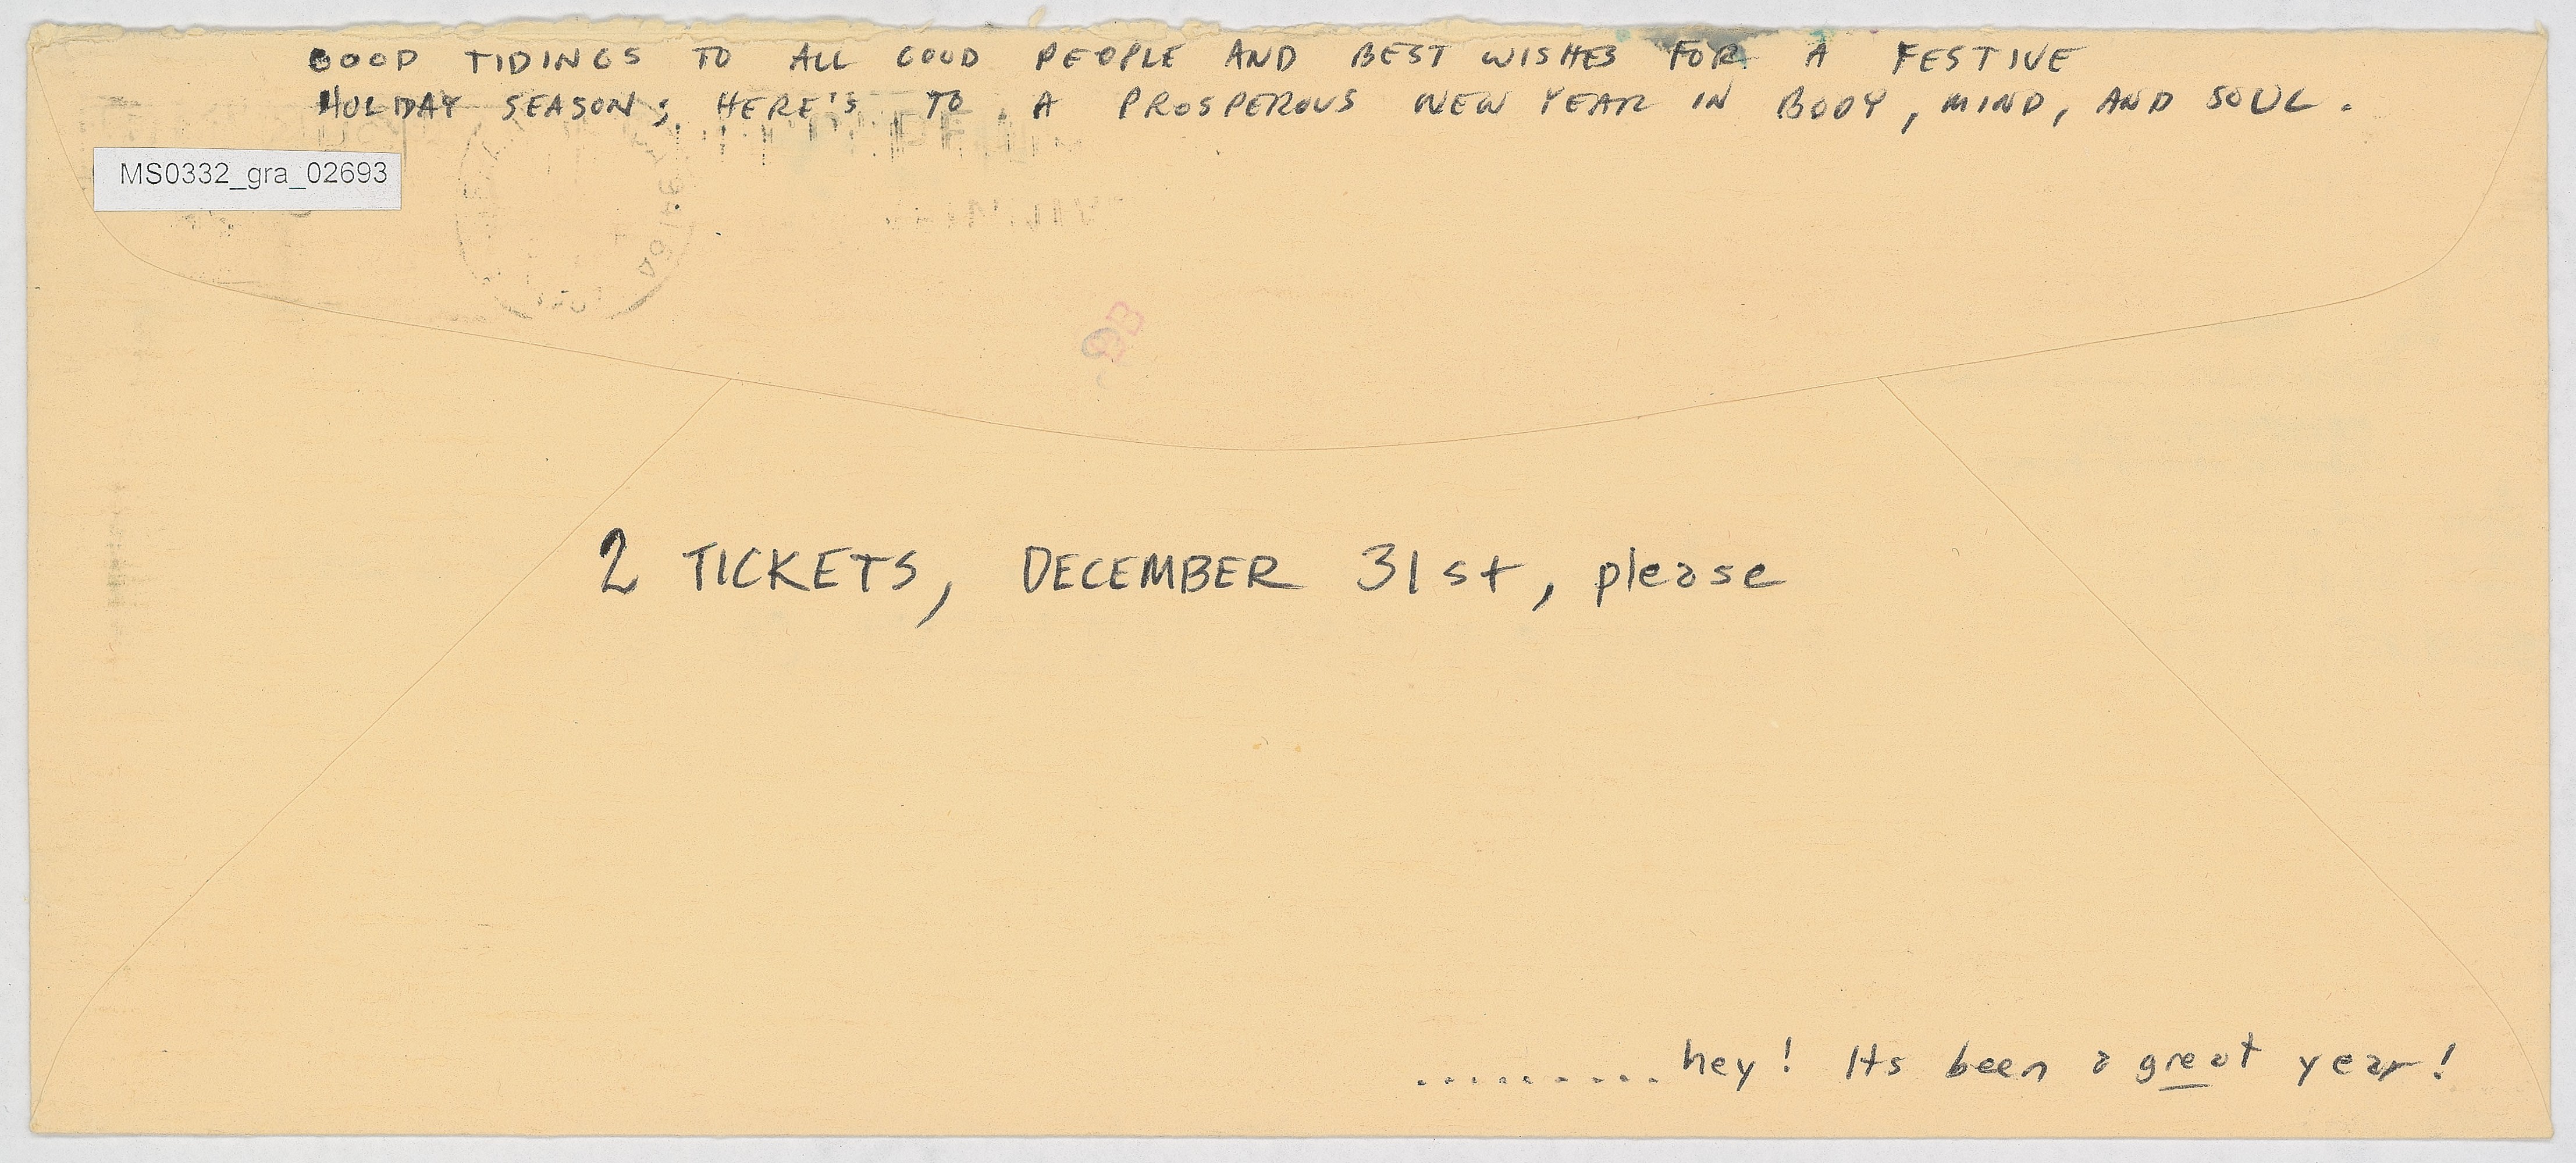 GOOD TIDINGS TO ALL GOOD PEOPLE AND BEST WISHES FOR A FESTIVE
HOLIDAY SEASON; HERE'S TO A PROSPEROUS NEW YEAR IN BODY, MIND, AND SOUL.
MS0332_gra_02693
2 TICKETS, DECEMBER 31st, please
.......... hey! Its been a great year!